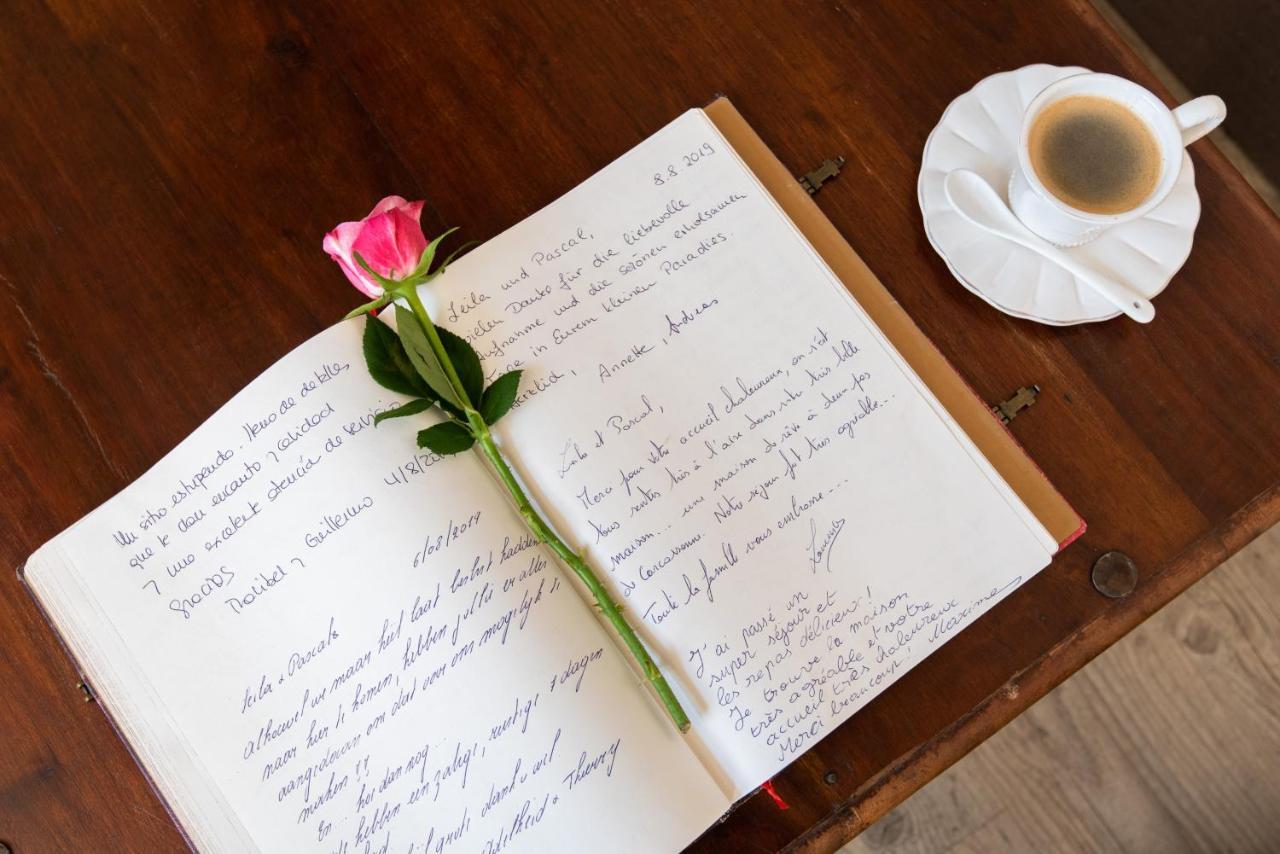 Un sitio estupendo. lleno de detalles
que te dan encanto y calidad
y una excelente atención de servicio
gracias
Maribel y Guillermo 4/8/20
6/08/2019
Leila & Pascal
alhoewel we maar heel laat beslist hadden
naar hier te komen, hebben jullie er alles
aangedaan om dat voor ons mogelijk te
maken !!
En hoe dan nog...
hebben een zalige, rustige 7 dagen
grote dank u wel
Adelheid & Thierry
8.8.2019
Leila und Pascal,
vielen Danke für die liebevolle
Aufnahme und die schönen erholsamen
Tage in Eurem kleinen Paradies.
Herzlich,
Annette, Andreas
Leila et Pascal,
Merci pour votre accueil chaleureux, on s'est
tous sentis très à l'aise dans votre très belle
maison... une maison de rêve à deux pas
de Carcassonne. Notre séjour fut très agréable...
Toute la famille vous embrasse...
J'ai passé un
super séjour et
les repas délicieux!
Je trouve la maison
très agréable et votre
accueil très chaleureux
Merci beaucoup! Maxime